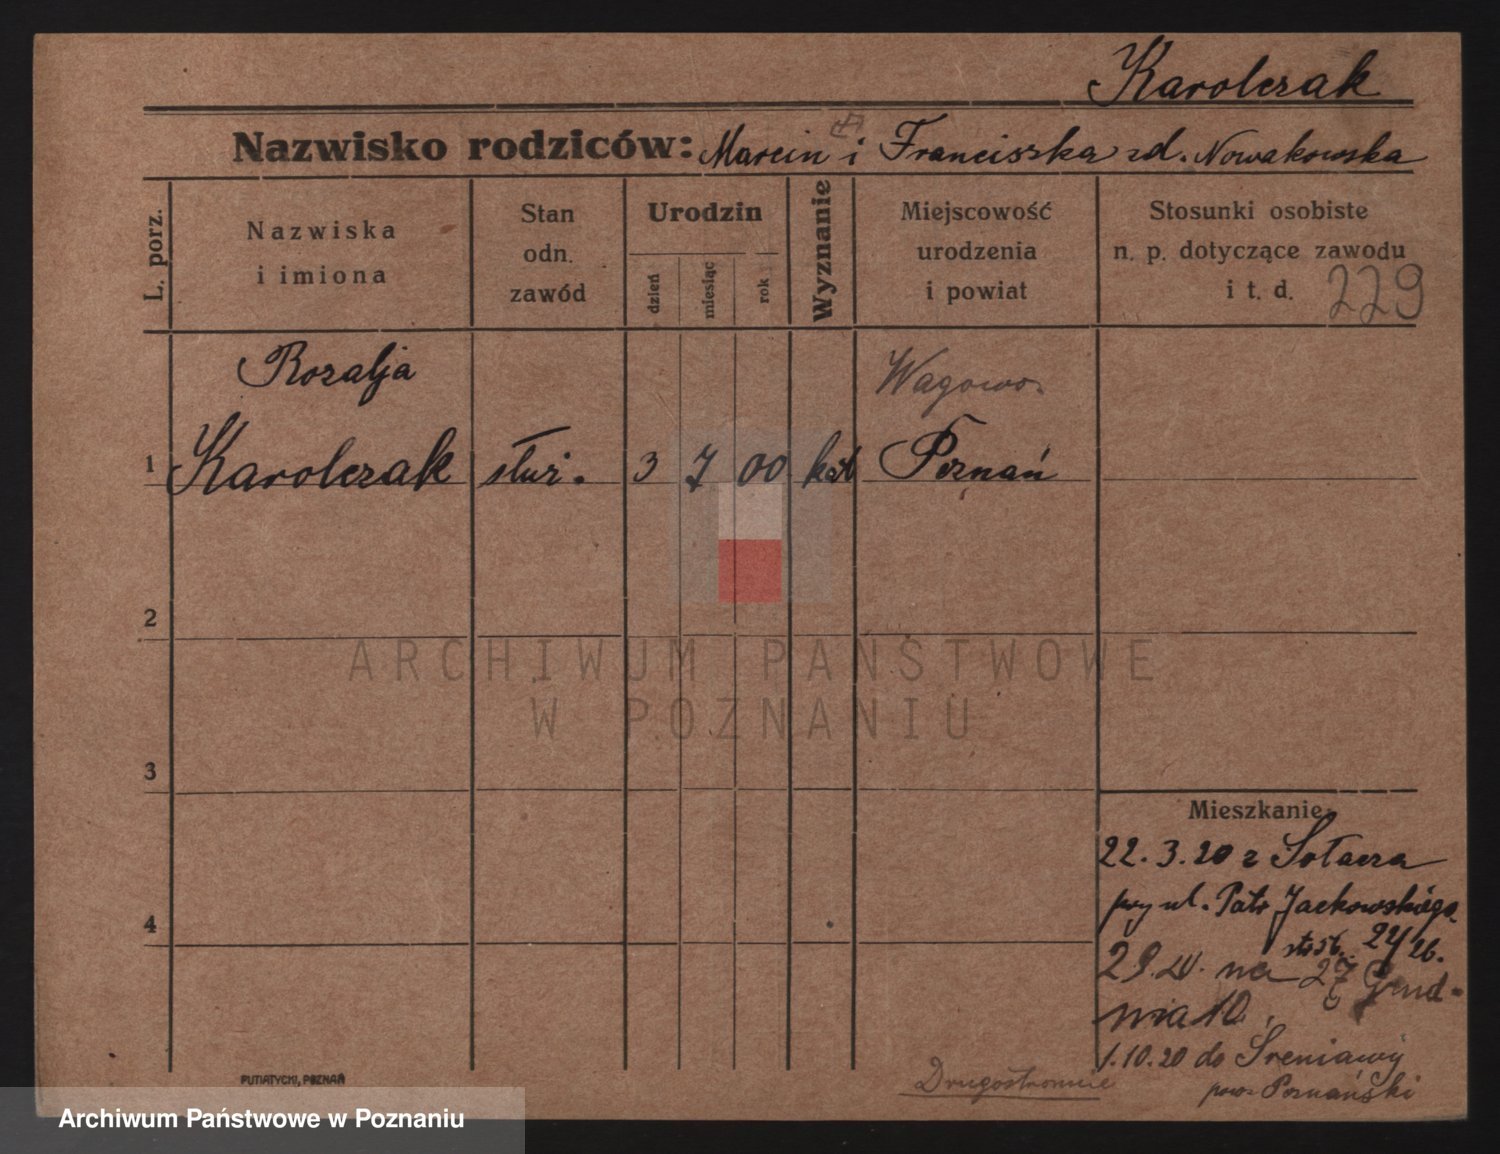 Karolczak
Nazwisko rodziców: Marcin i Franciszka zd. Nowakowska
L. porz.
Nazwiska
i imiona
Stan
odn.
zawód
Urodzin
dzień
miesiąc
rok
Wyznanie
Miejscowość
urodzenia
i powiat
Stosunki osobiste
n. p. dotyczące zawodu
i t. d.
229
Rozalja
Wagowo
1 Karolczak służ. 3 7 00 kat Poznań
2
ARCHIWUM PAŃSTWOWE
W POZNANIU
3
Mieszkanie
22.3.20 z Sołacza
przy ul. Patr Jackowskiego
24/26.
4
29. na 27 Grud-
nia 10.
1.10.20 do Sreniawy
pow. Poznański
Drugostronnie
PUTIATYCKI, POZNAŃ
Archiwum Państwowe w Poznaniu